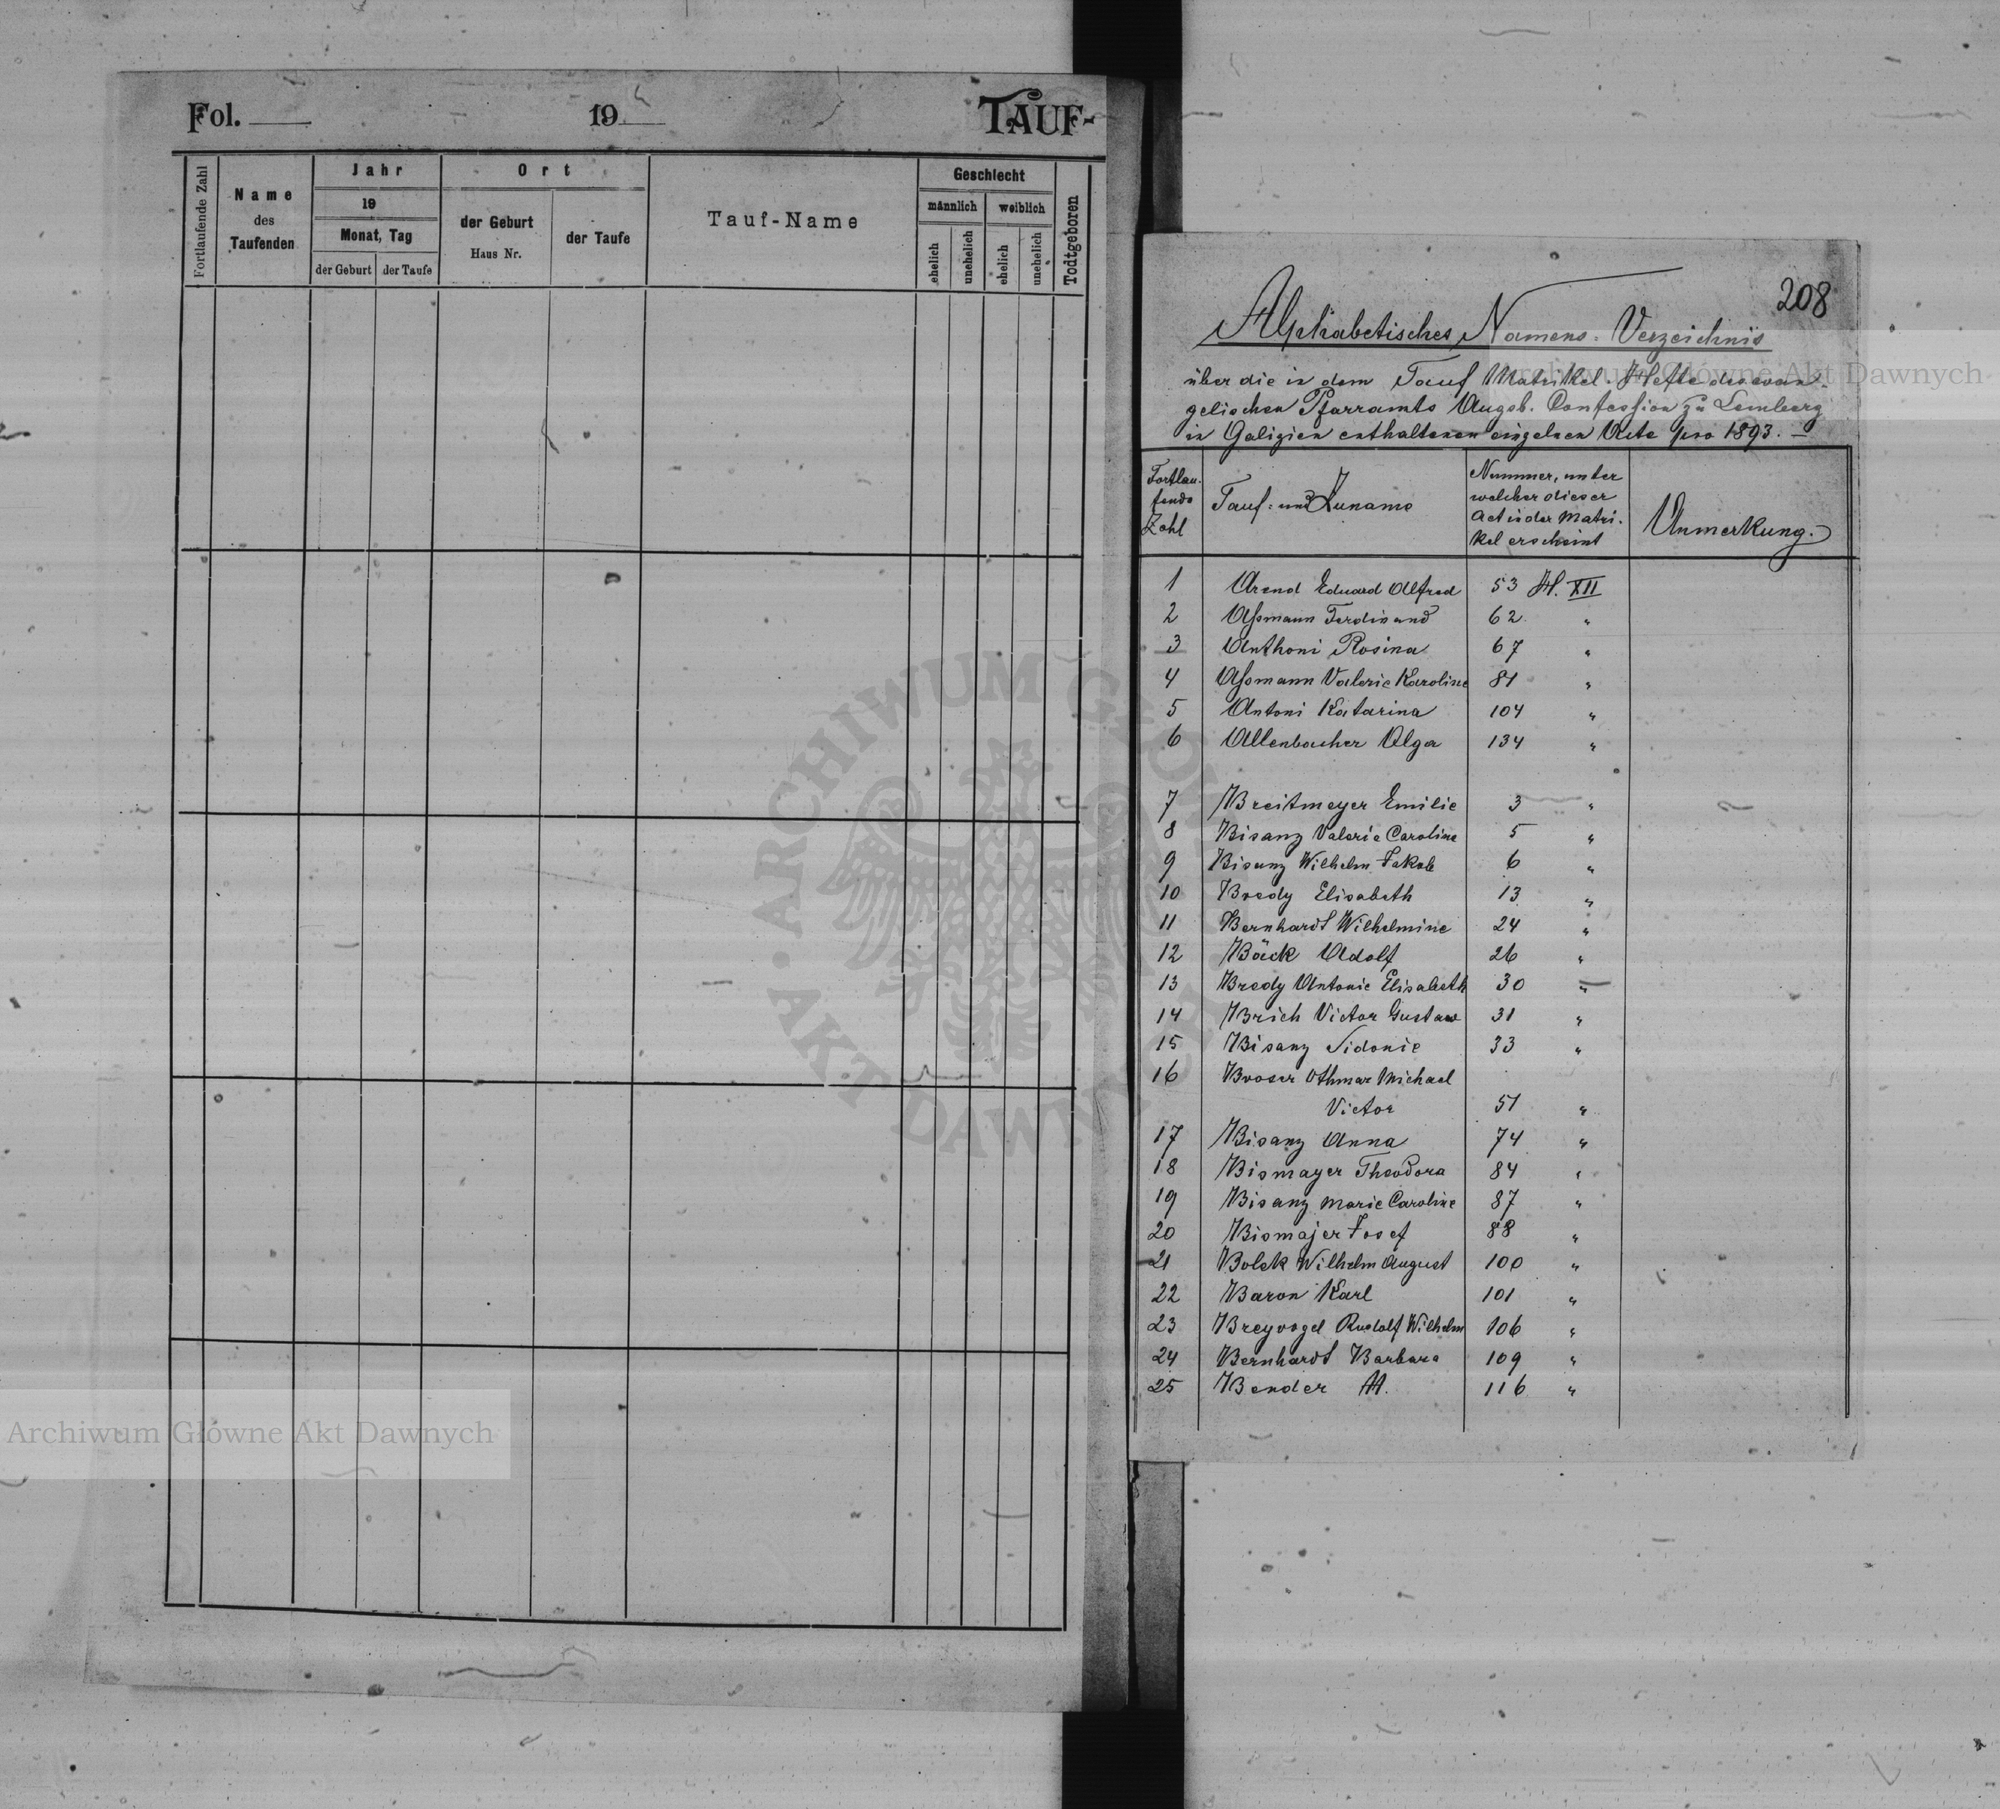 Fol.
19
TAUF-
Fortlaufende Zahl
Name
des
Taufenden
Jahr
19
Monat, Tag
der Geburt
der Taufe
Ort
der Geburt
Haus Nr.
der Taufe
Tauf-Name
Geschlecht
männlich
weiblich
ehelich
unehelich
ehelich
unehelich
Todtgeboren
208
Alphabetisches Namens-Verzeichnis
über die in dem Tauf Matrikel-Hefte des evan-
gelischen Pfarramts Augsb. Confession zu Lemberg
in Galizien enthaltenen einzelnen Acte pro 1893. –
Fortlau-
fende
Zahl
Tauf- und Zuname
Nummer, unter
welcher dieser
Act in der Matri-
kel erscheint
Anmerkung.
1 Arend Eduard Alfred 53 H. XII
2 Assmann Ferdinand 62 "
3 Anthoni Rosina 67 "
4 Assmann Valerie Karoline 81 "
5 Antoni Katarina 104 "
6 Allenbacher Olga 134 "
7 Breitmeyer Emilie 3 "
8 Bisanz Valerie Caroline 5 "
9 Bisanz Wilhelm Jakob 6 "
10 Bredy Elisabeth 13 "
11 Bernhardt Wilhelmine 24 "
12 Bäck Adolf 26 "
13 Bredy Antonie Elisabeth 30 "
14 Brich Victor Gustaw 31 "
15 Bisanz Sidonie 33 "
16 Broser Othmar Michael
Victor 51 "
17 Bisanz Anna 74 "
18 Bismayer Theodora 84 "
19 Bisanz Marie Caroline 87 "
20 Bismajer Josef 88 "
21 Bolek Wilhelm August 100 "
22 Baron Karl 101 "
23 Breyvogel Rudolf Wilhelm 106 "
24 Bernhardt Barbara 109 "
25 Bender M. 116 "
Archiwum Główne Akt Dawnych
ARCHIWUM GŁÓWNE
AKT DAWNYCH
Archiwum Główne Akt Dawnych